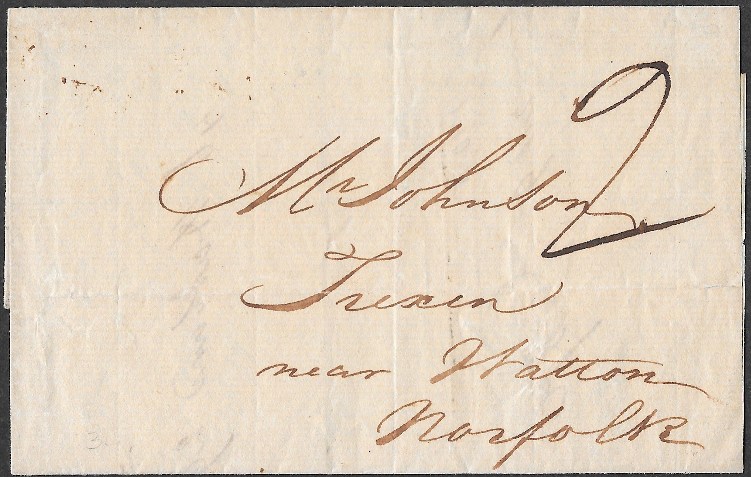 2
Mr Johnson
Trexen
near Watton
Norfolk
3